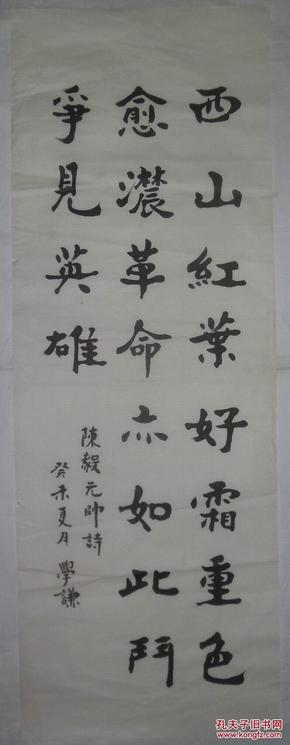 西山紅葉好霜重色
愈濃革命亦如此鬥
爭見英雄
陳毅元帥詩
癸未夏月 學謙
孔夫子旧书网